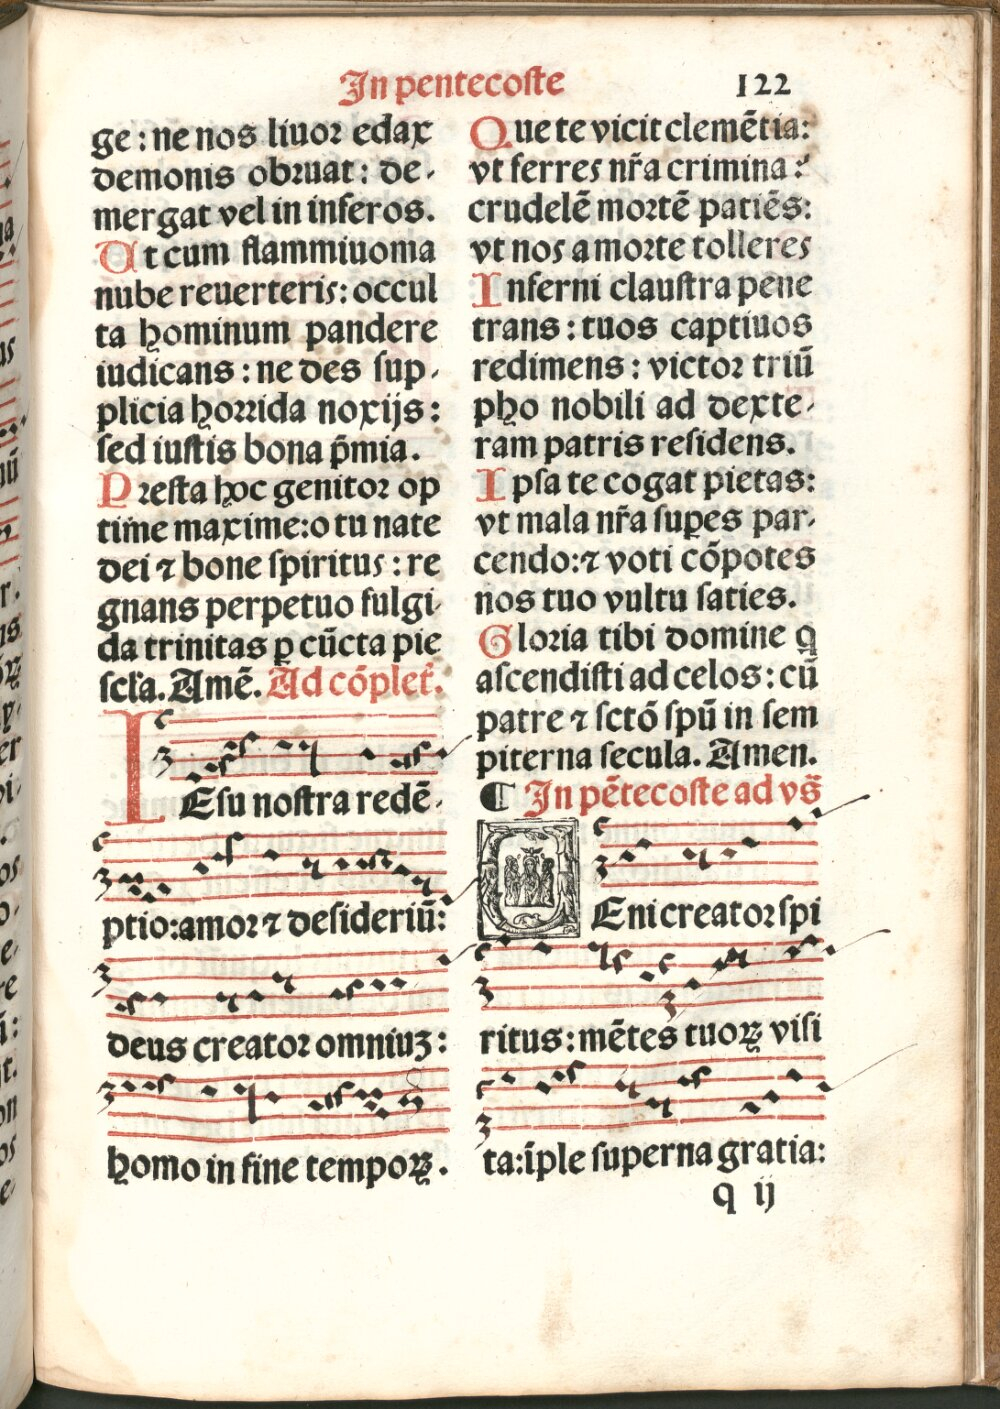 In pentecoste 122
ge : ne nos liuor edax
demonis obruat : de-
mergat vel in inferos.
Ut cum flammiuoma
nube reuerteris: occul
ta hominum pandere
iudicans : ne des sup-
plicia horrida noxijs :
sed iustis bona p̄mia.
Presta hoc genitor op
time maxime: o tu nate
dei ⁊ bone spiritus : re
gnans perpetuo fulgi-
da trinitas ꝑ cūcta pie
scl̄a. Amē. Ad cōplet̄.
IEsu nostra redē-
ptio: amor ⁊ desideriū:
deus creator omniuꝫ :
homo in fine tempoꝝ.
Que te vicit clemētia:
vt ferres nr̄a crimina :
crudelē mortē patiēs:
vt nos a morte tolleres
Inferni claustra pene
trans : tuos captiuos
redimens : victor triū
pho nobili ad dexte-
ram patris residens.
Ipsa te cogat pietas:
vt mala nr̄a suꝑes par-
cendo: ⁊ voti cōpotes
nos tuo vultu saties.
Gloria tibi domine q
ascendisti ad celos : cū
patre ⁊ sctō spū in sem
piterna secula. Amen.
¶ In pētecoste ad vs̄
UEni creator spi
ritus: mētes tuoꝝ visi
ta: īple superna gratia:
q ij